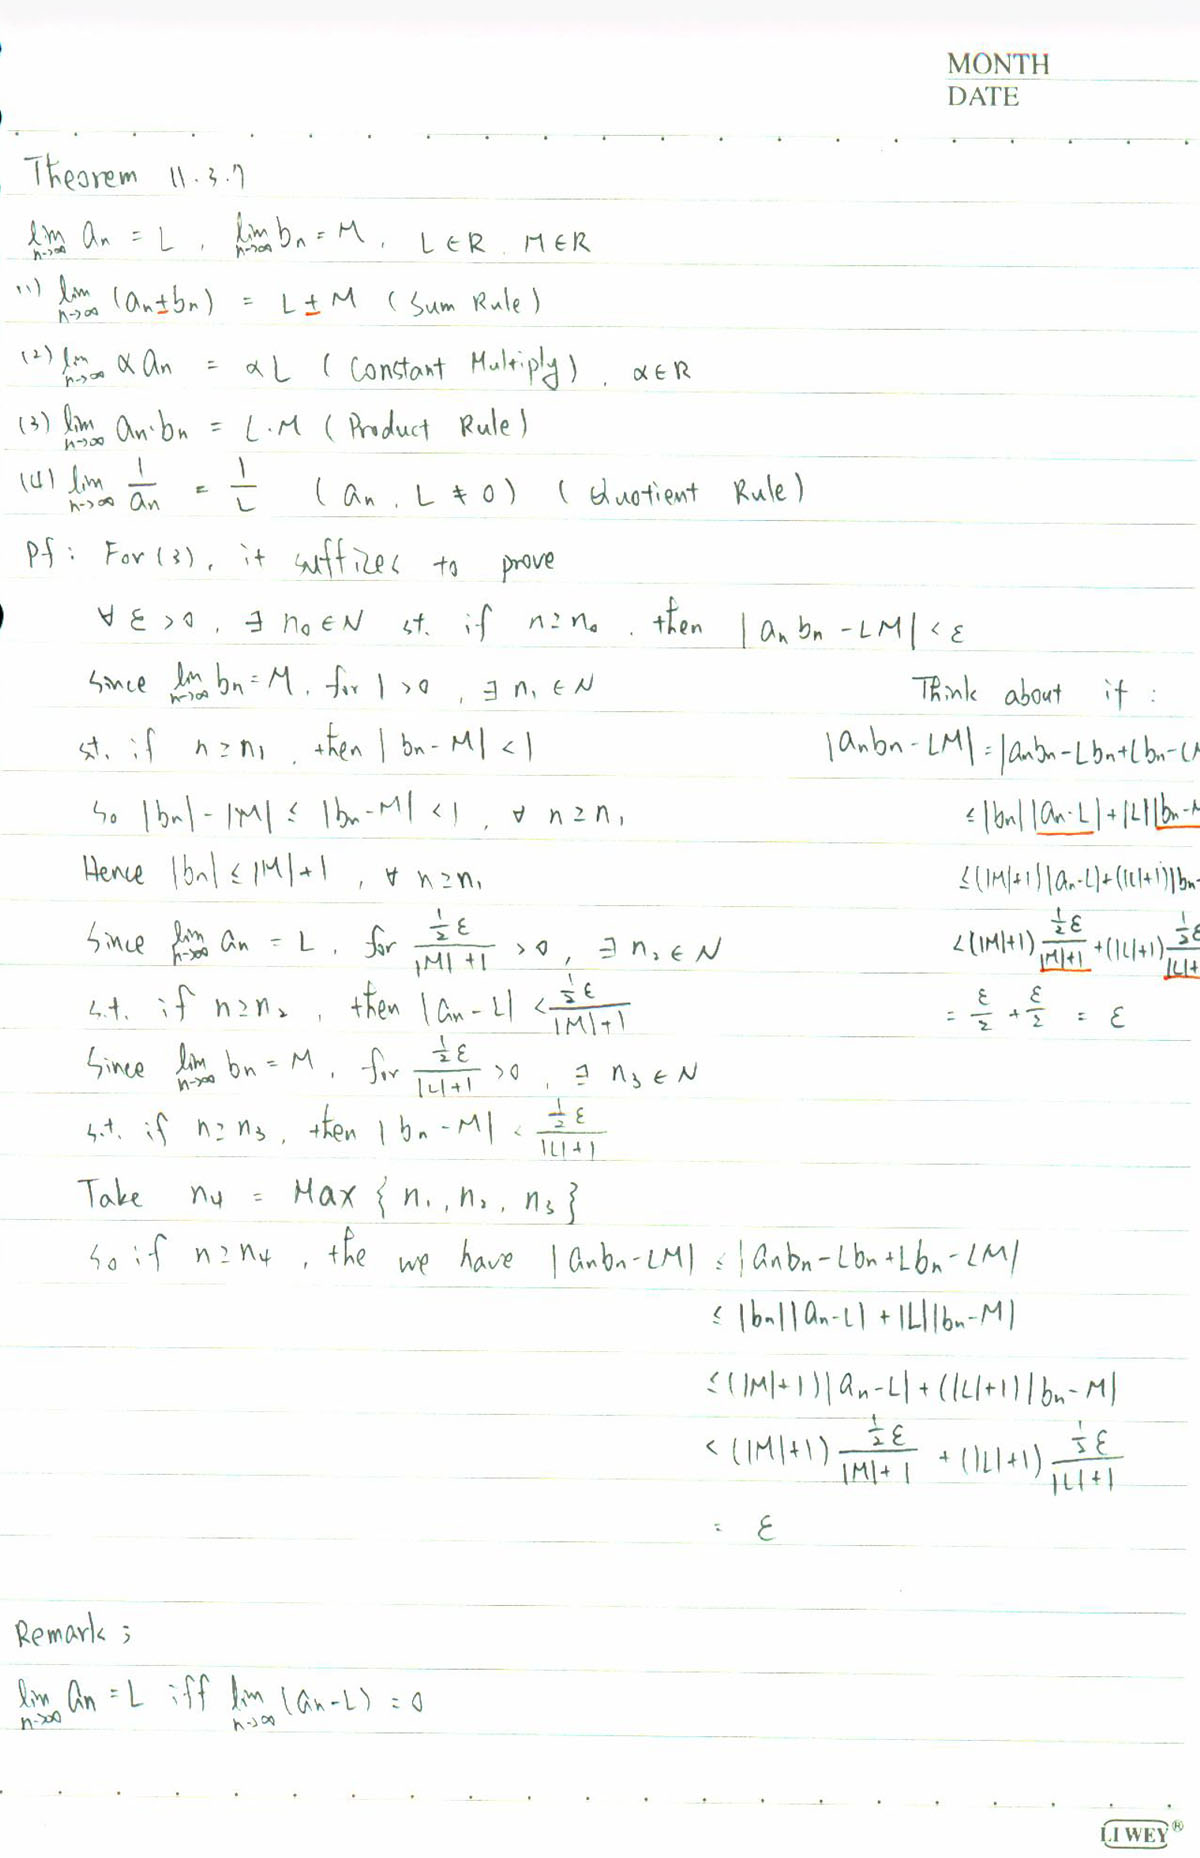 MONTH
DATE
Theorem 11.3.7
lim n→∞ an = L , lim n→∞ bn = M , L ∈ R . M ∈ R
(1) lim n→∞ (an ± bn) = L ± M ( Sum Rule )
(2) lim n→∞ α an = α L ( Constant Multiply ) , α ∈ R
(3) lim n→∞ an·bn = L·M ( Product Rule )
(4) lim n→∞ 1/an = 1/L ( an , L ≠ 0 ) ( Quotient Rule )
Pf : For (3) , it suffizes to prove
∀ ε > 0 , ∃ n0 ∈ N st. if n ≥ n0 , then | an bn - LM | < ε
Since lim n→∞ bn = M , for 1 > 0 , ∃ n1 ∈ N
st. if n ≥ n1 , then | bn - M | < 1
So |bn| - |M| ≤ |bn - M| < 1 , ∀ n ≥ n1
Hence |bn| ≤ |M| + 1 , ∀ n ≥ n1
Since lim n→∞ an = L , for ½ε/(|M|+1) > 0 , ∃ n2 ∈ N
s.t. if n ≥ n2 , then |an - L| < ½ε/(|M|+1)
Since lim n→∞ bn = M , for ½ε/(|L|+1) > 0 , ∃ n3 ∈ N
s.t. if n ≥ n3 , then | bn - M | < ½ε/(|L|+1)
Think about it :
|anbn - LM| = |anbn - Lbn + Lbn - LM
≤ |bn| |an - L| + |L| |bn - M
≤ (|M|+1) |an - L| + (|L|+1) |bn -
< (|M|+1) ½ε/(|M|+1) + (|L|+1) ½ε/(|L|+
= ε/2 + ε/2 = ε
Take n4 = Max { n1 , n2 , n3 }
So if n ≥ n4 , the we have | anbn - LM | ≤ | anbn - Lbn + Lbn - LM |
≤ |bn| |an - L| + |L| |bn - M|
≤ (|M|+1) | an - L | + (|L|+1) | bn - M |
< (|M|+1) ½ε/(|M|+1) + (|L|+1) ½ε/(|L|+1)
= ε
Remark ;
lim n→∞ an = L iff lim n→∞ (an - L) = 0
LIWEY®